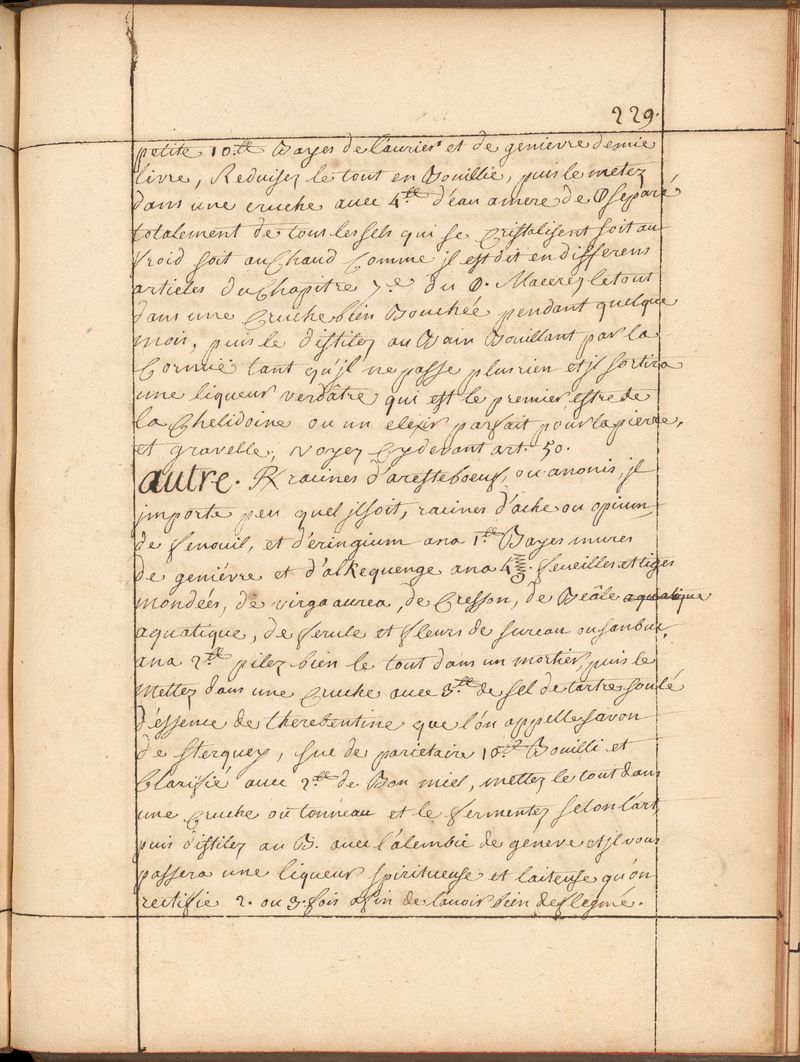 229.
petite 10.tt Bayes de laurier et de genievre demie
livre, Reduisez le tout en Bouillie, puis le metez
dans une cruche avec 4.tt d'eau amere de separé
totalement de tous les sels qui se Cristilisent soit au
froid soit au Chaud Comme jl est dit en differens
articles du Chapitre 7.e du Macerez le tout
dans une Cruche bien Bouchée pendant quelque
mois, puis le distilez au Bain Bouillant par la
Cornuë tant qu'jl ne passe plus rien et jl sortira
une liqueur verdâtre qui est le premier estre de
la Chelidoine ou un elexir parfait pour la pierre,
et gravelle, voyez Cy devant art. 50.
autre. ℞ racines d'aresteboeuf, ou anonis, jl
jmporte peu quel jl soit, racines d'ache ou opium,
de fenouil, et d'eringium ana 1.tt Bayes mures
de geniévre et d'alkequenge ana 4 feveilles et tiges
mondées, de virga aurea, de Cresson, de Beâle aquatique
aquatique, de ferule et fleurs de sureau ou sanbuc,
ana 2.tt pilez bien le tout dans un mortier, puis le
Mettez dans une Cruche avec 3.tt de sel de tartre soulé
d'éssence de therebentine que l'ón appelle savon
de sterquey, suc de parietaire 10.tt Bouilli et
Clarifié avec 2.tt de Bon miel, mettez le tout dans
une Cruche ou tonneau et le fermentez selon l'art,
puis distilez au B. avec l'alembic de geneve et jl vous
passera une liqueur spiritueuse et laiteuse qu'on
rectifie 2. ou 3. fois afin de l'avoir bien deflegmé.